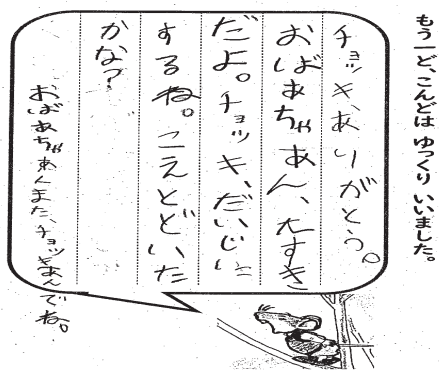 もう一ど、こんどは ゆっくり いいました。
チョッキ、ありがとう。
おばあちゃあん、大すき
だよ。チョッキ、だいじに
するね。こえとどいた
かな?
おばあちゃあんまた、チョッキあんでね。